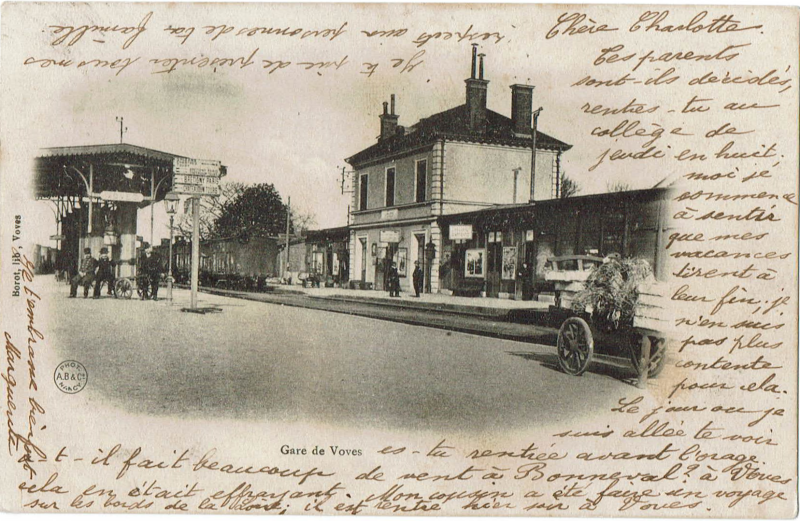 Chère Charlotte.
Tes parents
sont-ils décidés,
rentres-tu au
collège de
jeudi en huit,
moi je
commence
à sentir
que mes
vacances
tirent à
leur fin, je
n'en suis
pas plus
contente
pour cela.
Le jour où je
suis allée te voir
es-tu rentrée avant l'orage
t-il fait beaucoup de vent à Bonneval? à Voves
cela en était effrayant. Mon cousin a été faire un voyage
sur les bords de la Loire, il est rentré hier soir à Voves.
Je te prie de présenter tous mes
respects aux personnes de ta famille
Je t'embrasse bien fort
Marguerite
Gare de Voves
Borot, lib., Voves
PHOT.
A.B & Cie
NANCY